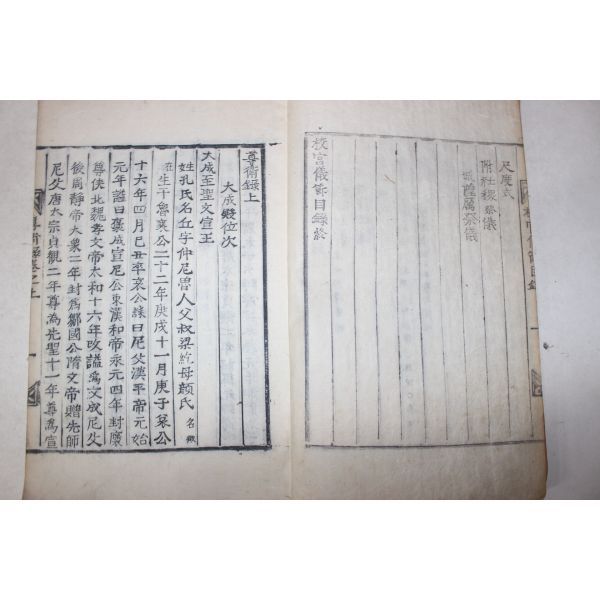 尺度式
附社稷祭儀
城隍厲祭儀
校宮儀節目錄終
尊衛錄上
大成殿位次
大成至聖文宣王
姓孔氏名丘字仲尼魯人父叔梁紇母顔氏名徵
在生于魯襄公二十二年庚戌十一月庚子哀公
十六年四月己丑卒哀公誄曰尼父漢平帝元始
元年謚曰褒成宣尼公東漢和帝永元四年封褒
尊侯北魏孝文帝太和十六年改謚爲文成尼父
後周靜帝大象二年封爲鄒國公隋文帝贈先師
尼父唐太宗貞觀二年尊為先聖十一年尊爲宣